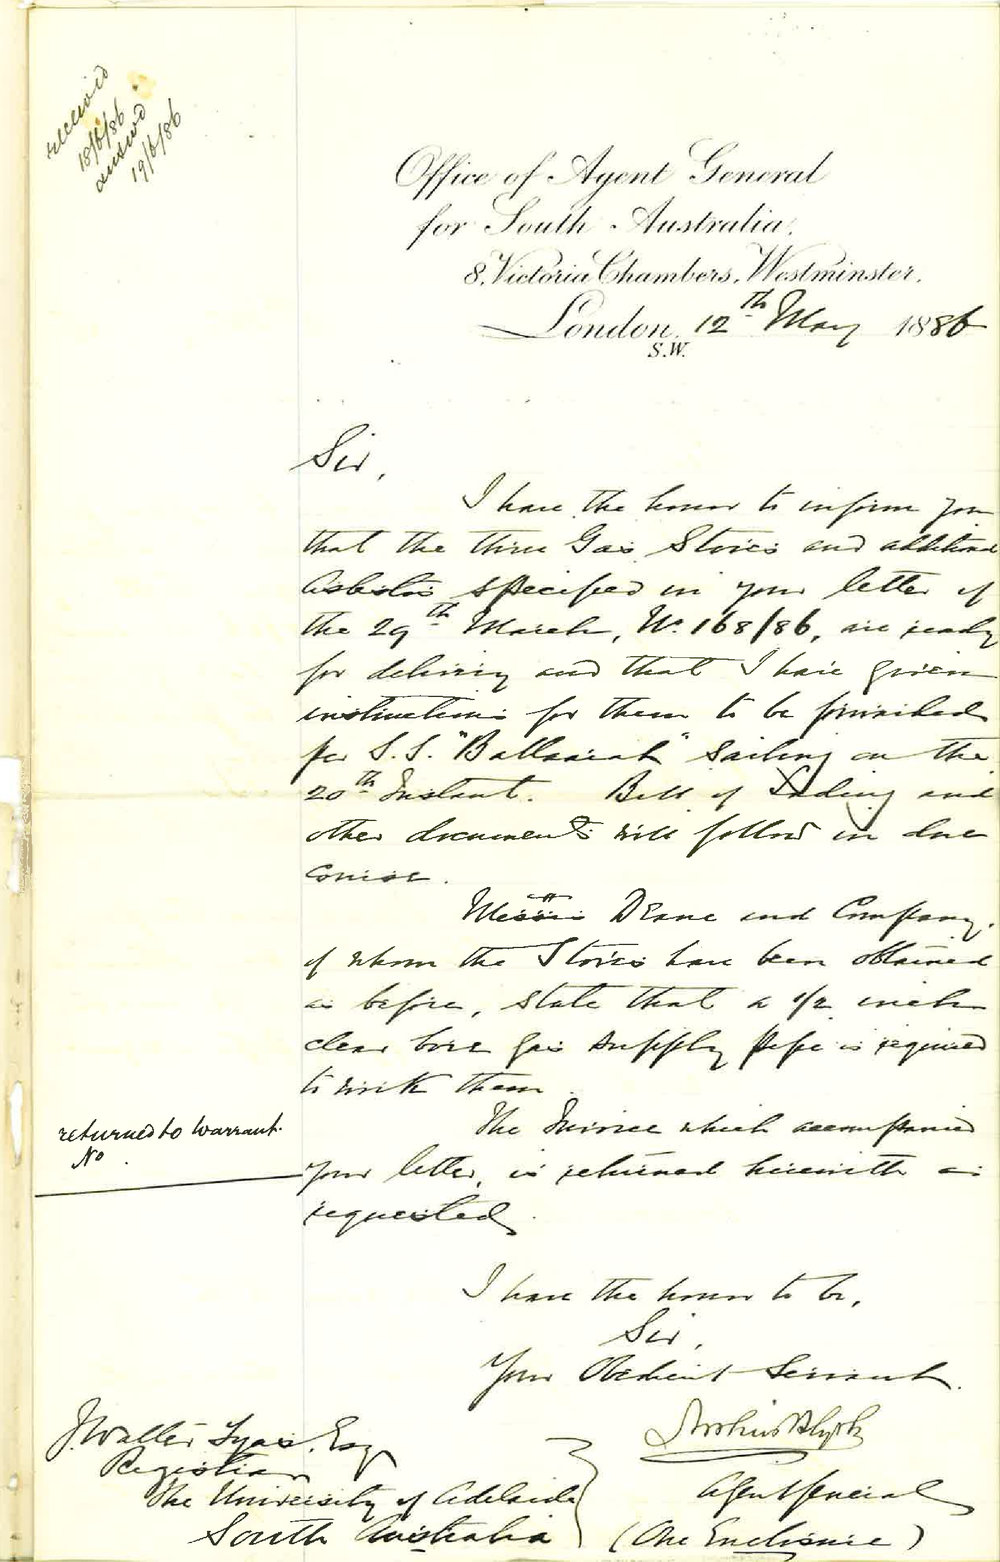 received
18/6/86
answd
19/6/86
Office of Agent General
for South Australia,
8, Victoria Chambers, Westminster,
London, 12th May 1886
S.W.
Sir,
I have the honor to inform you
that the three Gas Stoves and additional
Asbestos specified in your letter of
the 29th March, No. 168/86, are ready
for delivery and that I have given
instructions for them to be forwarded
per S.S. "Ballaarat" sailing on the
20th Instant. Bill of Lading and
other documents will follow in due
course.
Messrs Deane and Company,
of whom the Stoves have been obtained
as before, state that a 1/2 inch
clear bore gas supply pipe is required
to work them.
The Invoice which accompanied
your letter, is returned herewith as
requested.
returned to Warrant.
No.
I have the honor to be,
Sir,
Your Obedient Servant.
Arthur Blyth
Agent General
(One Enclosure)
J. Walter Tyas, Esq
Registrar
The University of Adelaide
South Australia